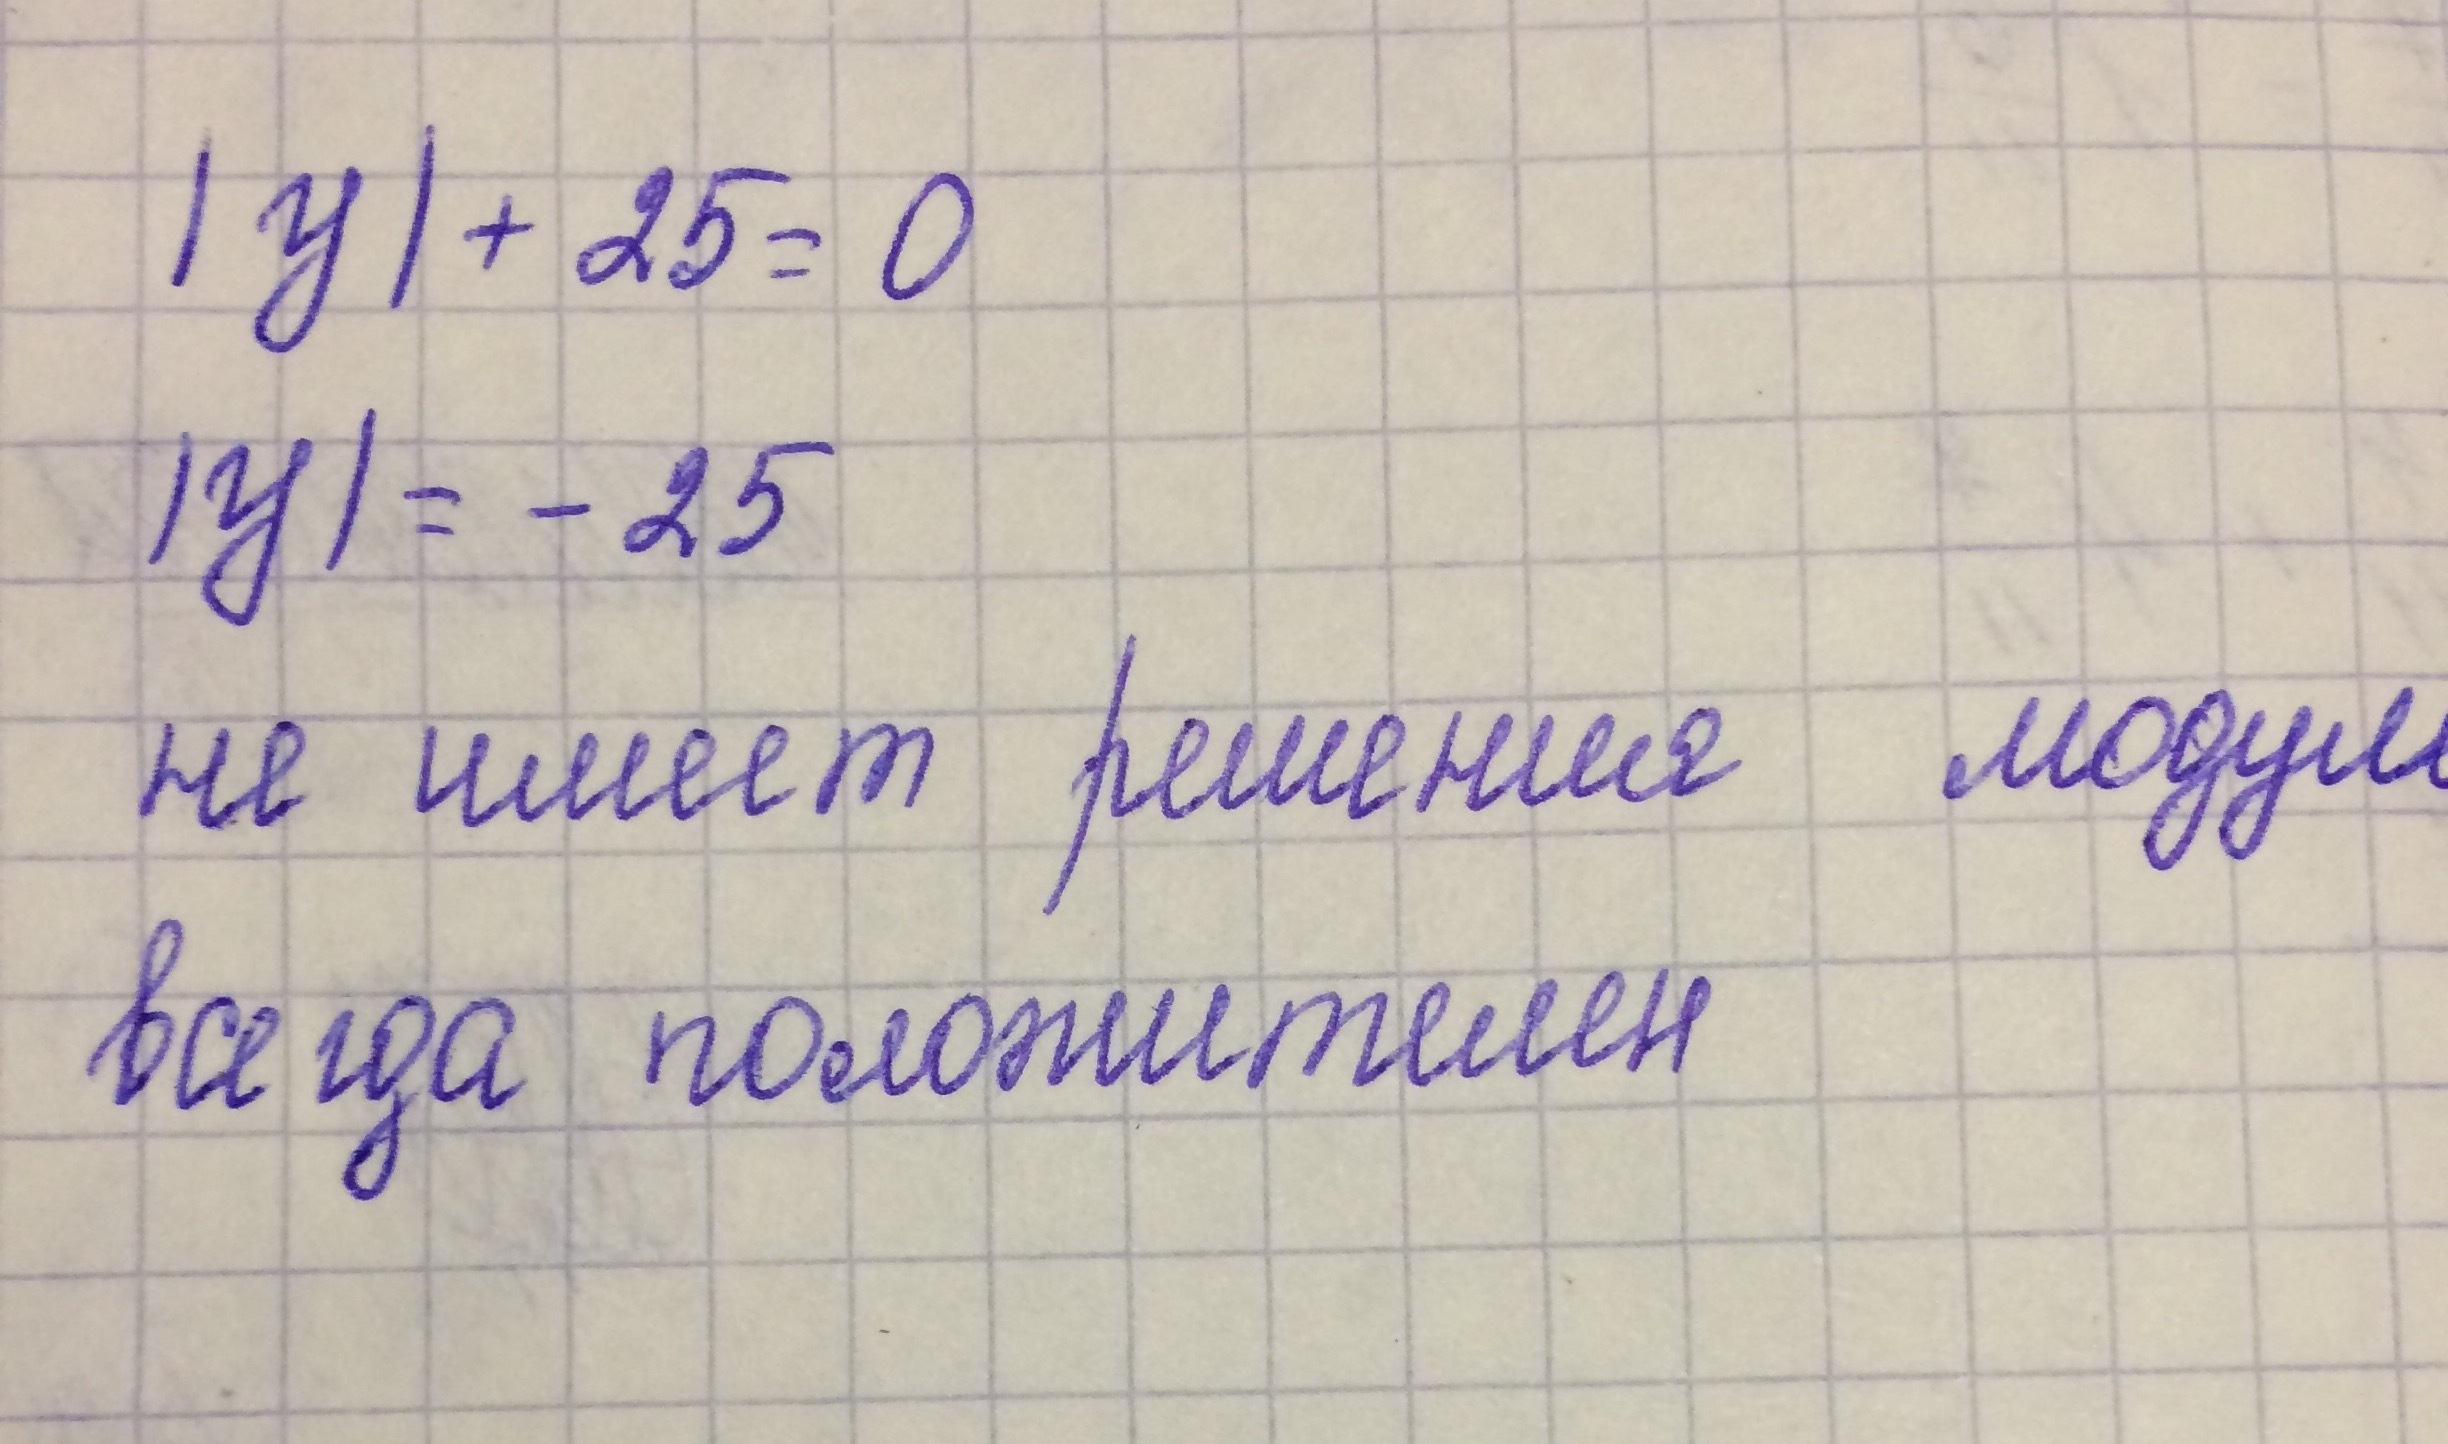 |y| + 25 = 0
|y| = - 25
не имеет решения модул
всегда положителен